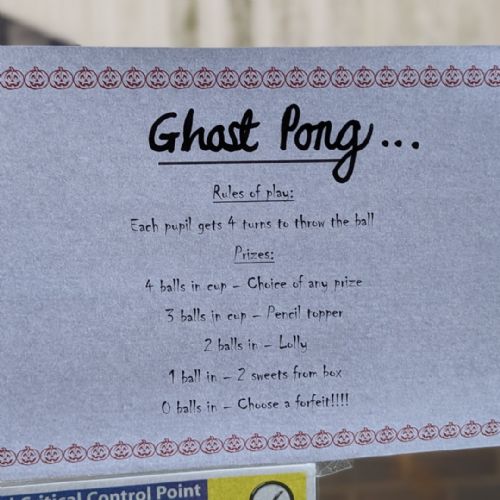 Ghost Pong...
Rules of play:
Each pupil gets 4 turns to throw the ball
Prizes:
4 balls in cup – Choice of any prize
3 balls in cup – Pencil topper
2 balls in – Lolly
1 ball in – 2 sweets from box
0 balls in – Choose a forfeit!!!!
Critical Control Point